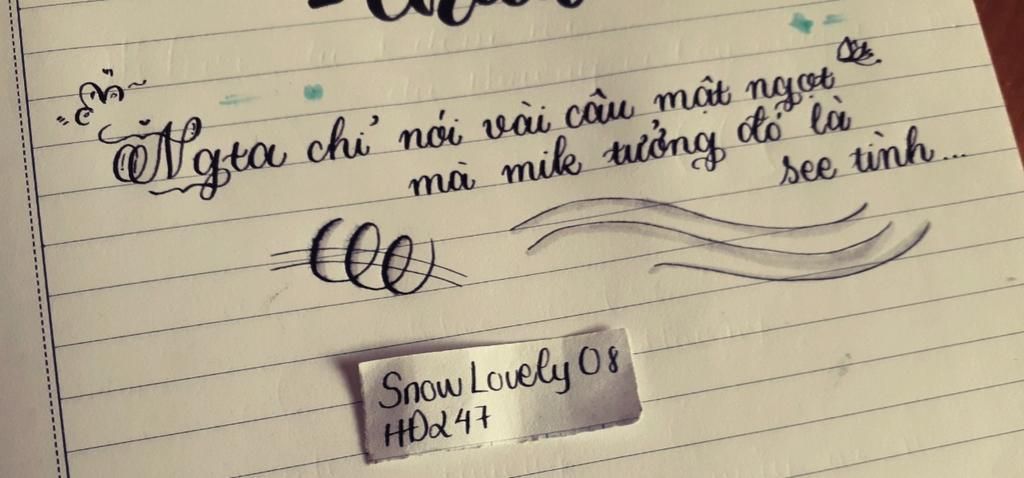 Ngta chỉ nói vài câu mật ngọt
mà mik tưởng đó là
see tình...
Snow Lovely 08
HD247